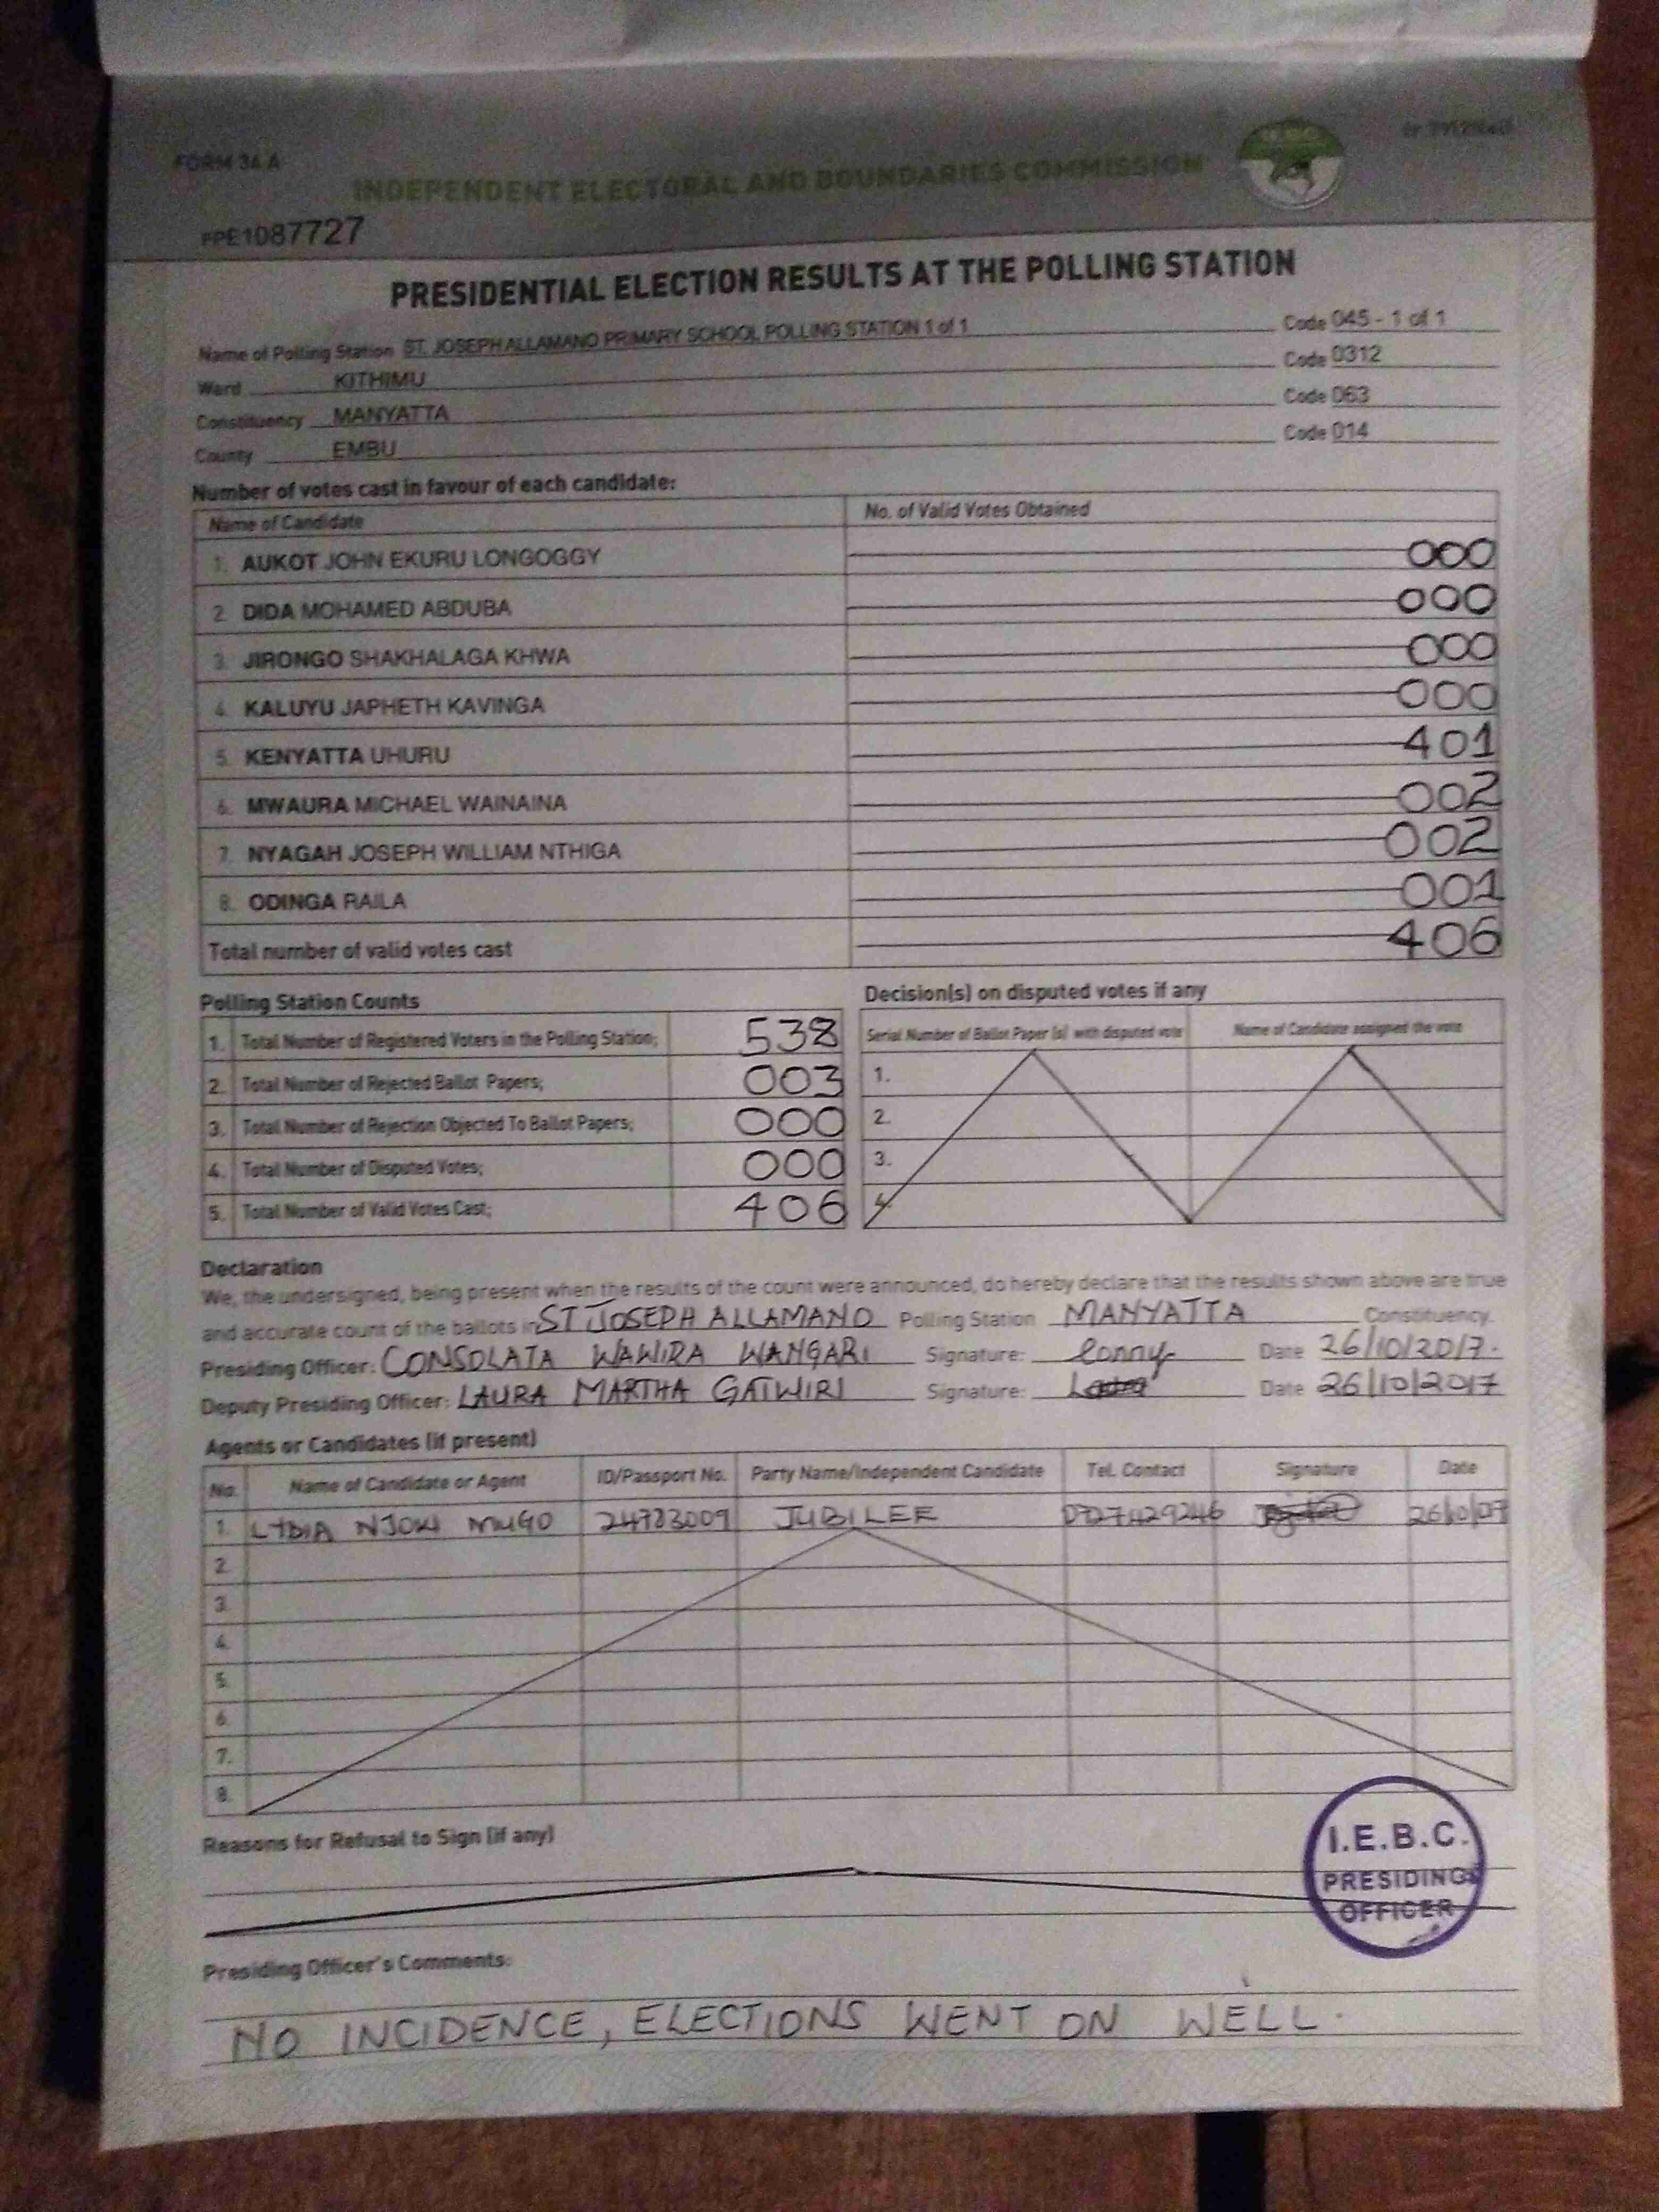 FORM 34 A
INDEPENDENT ELECTORAL AND BOUNDARIES COMMISSION
FPE1087727
PRESIDENTIAL ELECTION RESULTS AT THE POLLING STATION
Name of Polling Station ST. JOSEPH ALLAMANO PRIMARY SCHOOL POLLING STATION 1 of 1 Code 045 - 1 of 1
Ward KITHIMU Code 0312
Constituency MANYATTA Code 063
County EMBU Code 014
Number of votes cast in favour of each candidate:
Name of Candidate No. of Valid Votes Obtained
1. AUKOT JOHN EKURU LONGOGGY 000
2. DIDA MOHAMED ABDUBA 000
3. JIRONGO SHAKHALAGA KHWA 000
4. KALUYU JAPHETH KAVINGA 000
5. KENYATTA UHURU 401
6. MWAURA MICHAEL WAINAINA 002
7. NYAGAH JOSEPH WILLIAM NTHIGA 002
8. ODINGA RAILA 001
Total number of valid votes cast 406
Polling Station Counts
1. Total Number of Registered Voters in the Polling Station; 538
2. Total Number of Rejected Ballot Papers; 003
3. Total Number of Rejection Objected To Ballot Papers; 000
4. Total Number of Disputed Votes; 000
5. Total Number of Valid Votes Cast; 406
Decision(s) on disputed votes if any
Serial Number of Ballot Paper (s) with disputed vote Name of Candidate assigned the vote
1.
2.
3.
4.
Declaration
We, the undersigned, being present when the results of the count were announced, do hereby declare that the results shown above are true
and accurate count of the ballots in ST JOSEPH ALLAMANO Polling Station MANYATTA Constituency.
Presiding Officer: CONSOLATA WAWIRA WANGARI Signature: Date 26/10/2017.
Deputy Presiding Officer: LAURA MARTHA GATWIRI Signature: Date 26/10/2017
Agents or Candidates (if present)
No. Name of Candidate or Agent ID/Passport No. Party Name/Independent Candidate Tel. Contact Signature Date
1. LYDIA NJOKI MUGO 24783009 JUBILEE 0727429246
2.
3.
4.
5.
6.
7.
8.
Reasons for Refusal to Sign (if any)
I.E.B.C.
PRESIDING
OFFICER
Presiding Officer's Comments:
NO INCIDENCE, ELECTIONS WENT ON WELL.